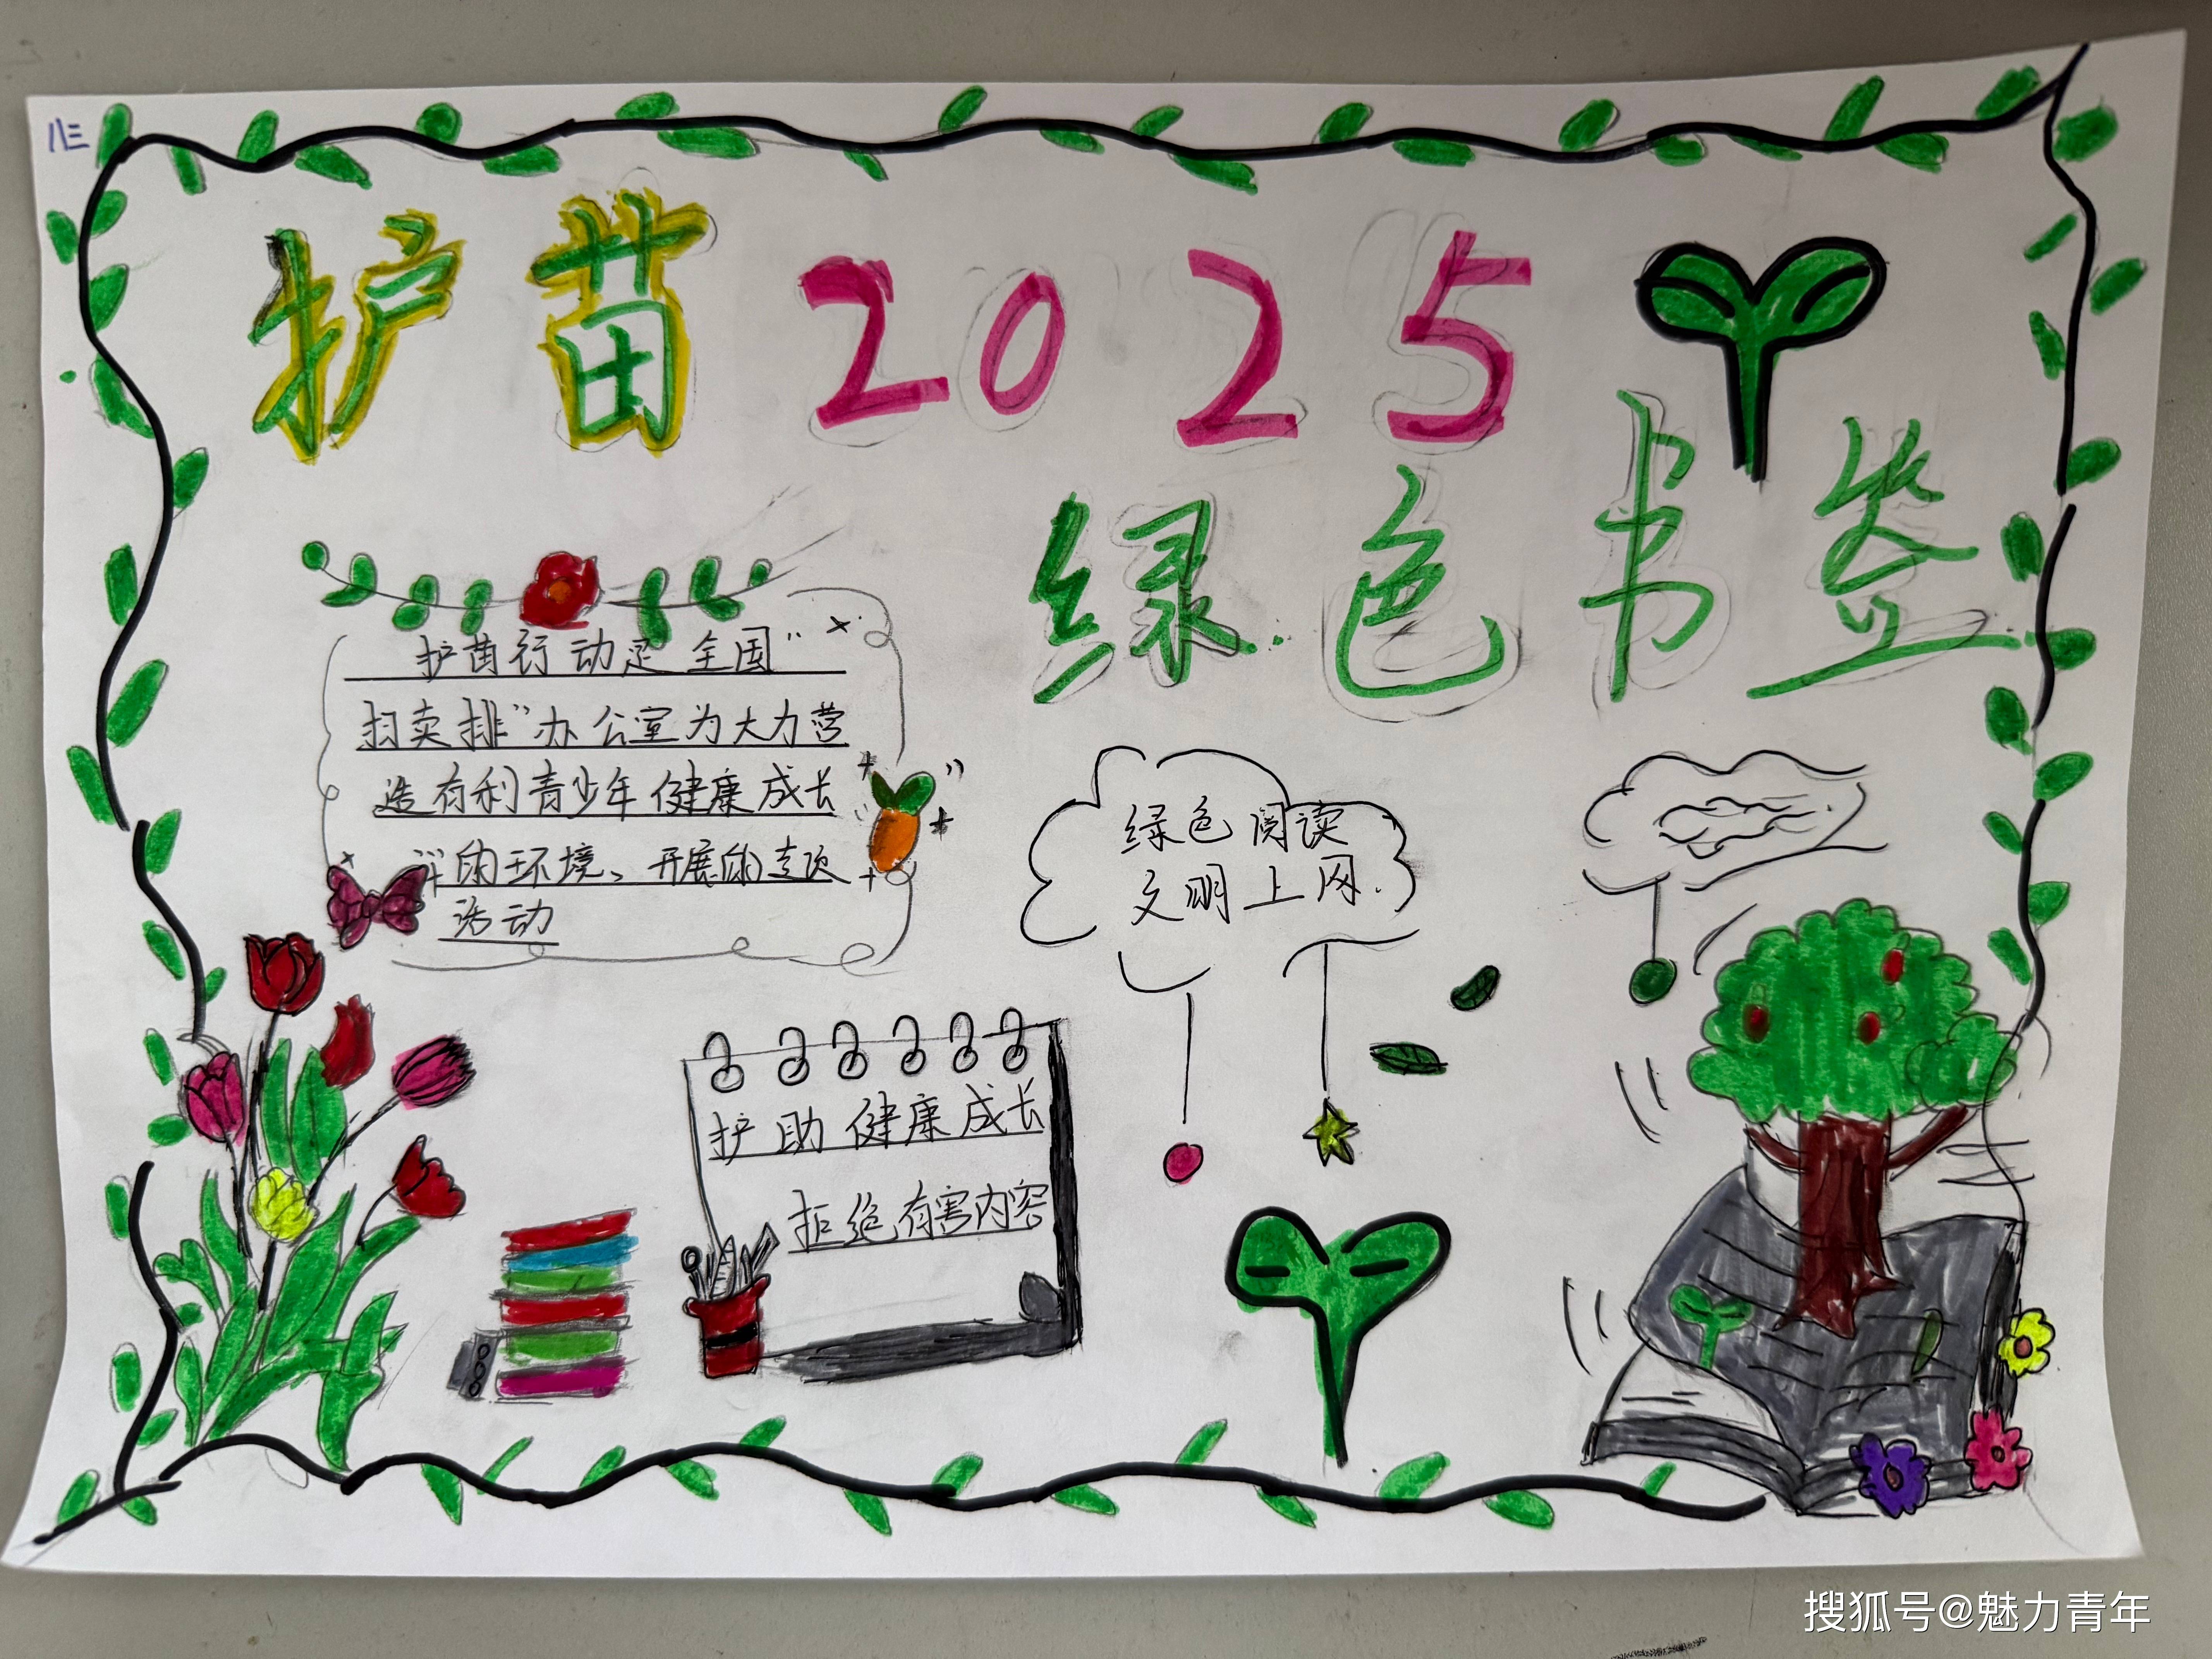 八三
护苗2025
绿色书签
护苗行动是全国"
扫卖排"办公室为大力营
造有利青少年健康成长
的环境、开展的专项
活动
绿色阅读
文明上网.
护助健康成长
拒绝有害内容
搜狐号@魅力青年